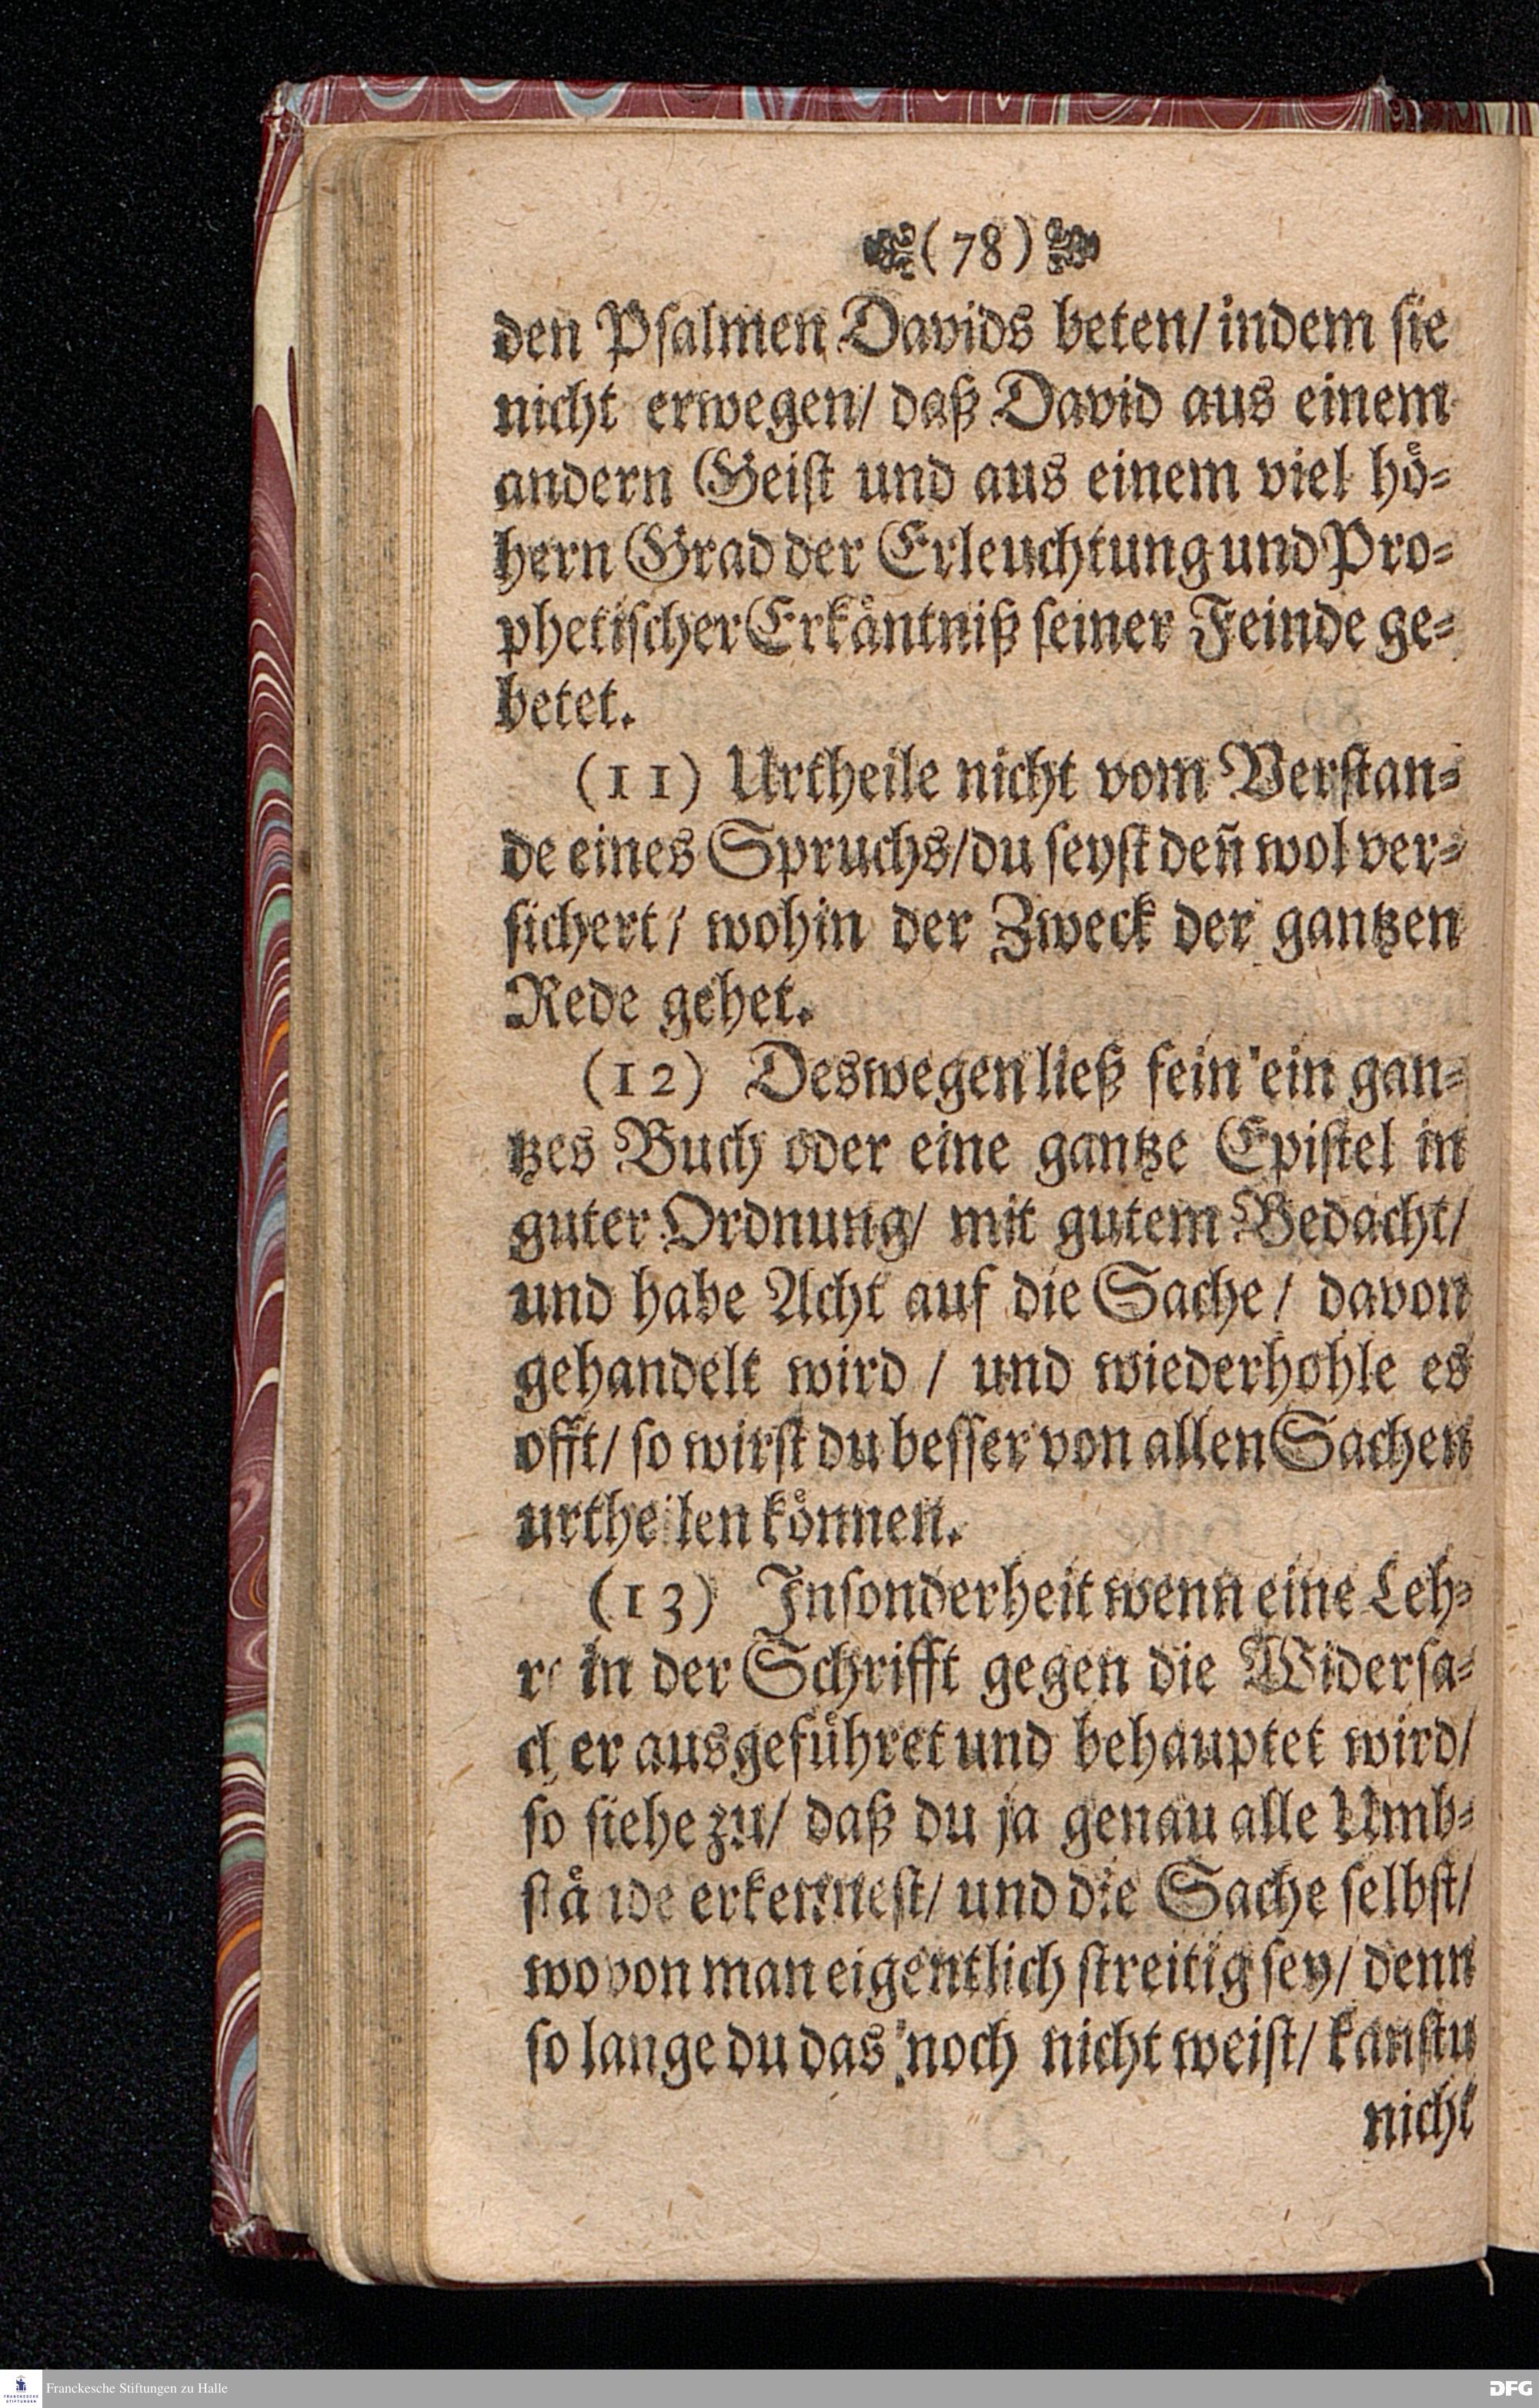 (78)
den Psalmen Davids beten/ indem sie
nicht erwegen/ daß David aus einem
andern Geist und aus einem viel hoͤ-
hern Grad der Erleuchtung und Pro-
phetischer Erkaͤntniß seiner Feinde ge-
betet.
(11) Urtheile nicht vom Verstan-
de eines Spruchs/ du seyst deñ wol ver-
sichert/ wohin der Zweck der gantzen
Rede gehet.
(12) Deswegen ließ fein ein gan-
tzes Buch oder eine gantze Epistel in
guter Ordnung/ mit gutem Bedacht/
und habe Acht auf die Sache/ davon
gehandelt wird / und wiederhohle es
offt/ so wirst du besser von allen Sachen
urtheilen koͤnnen.
(13) Insonderheit wenn eine Leh-
re in der Schrifft gegen die Widersa-
cher ausgefuͤhret und behauptet wird/
so siehe zu/ daß du ja genau alle Umb-
staͤnde erkennest/ und die Sache selbst/
wovon man eigentlich streitig sey/ denn
so lange du das noch nicht weist/ kanstu
nicht
Franckesche Stiftungen zu Halle
FRANCKESCHE
STIFTUNGEN
DFG